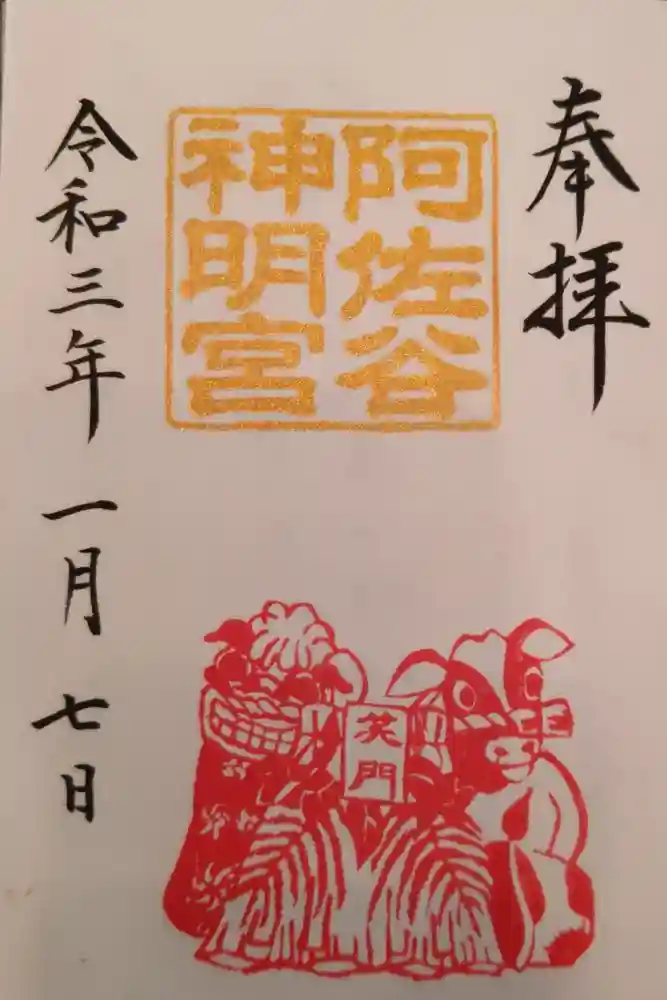 奉拝
阿佐谷
神明宮
笑門
令和三年一月七日